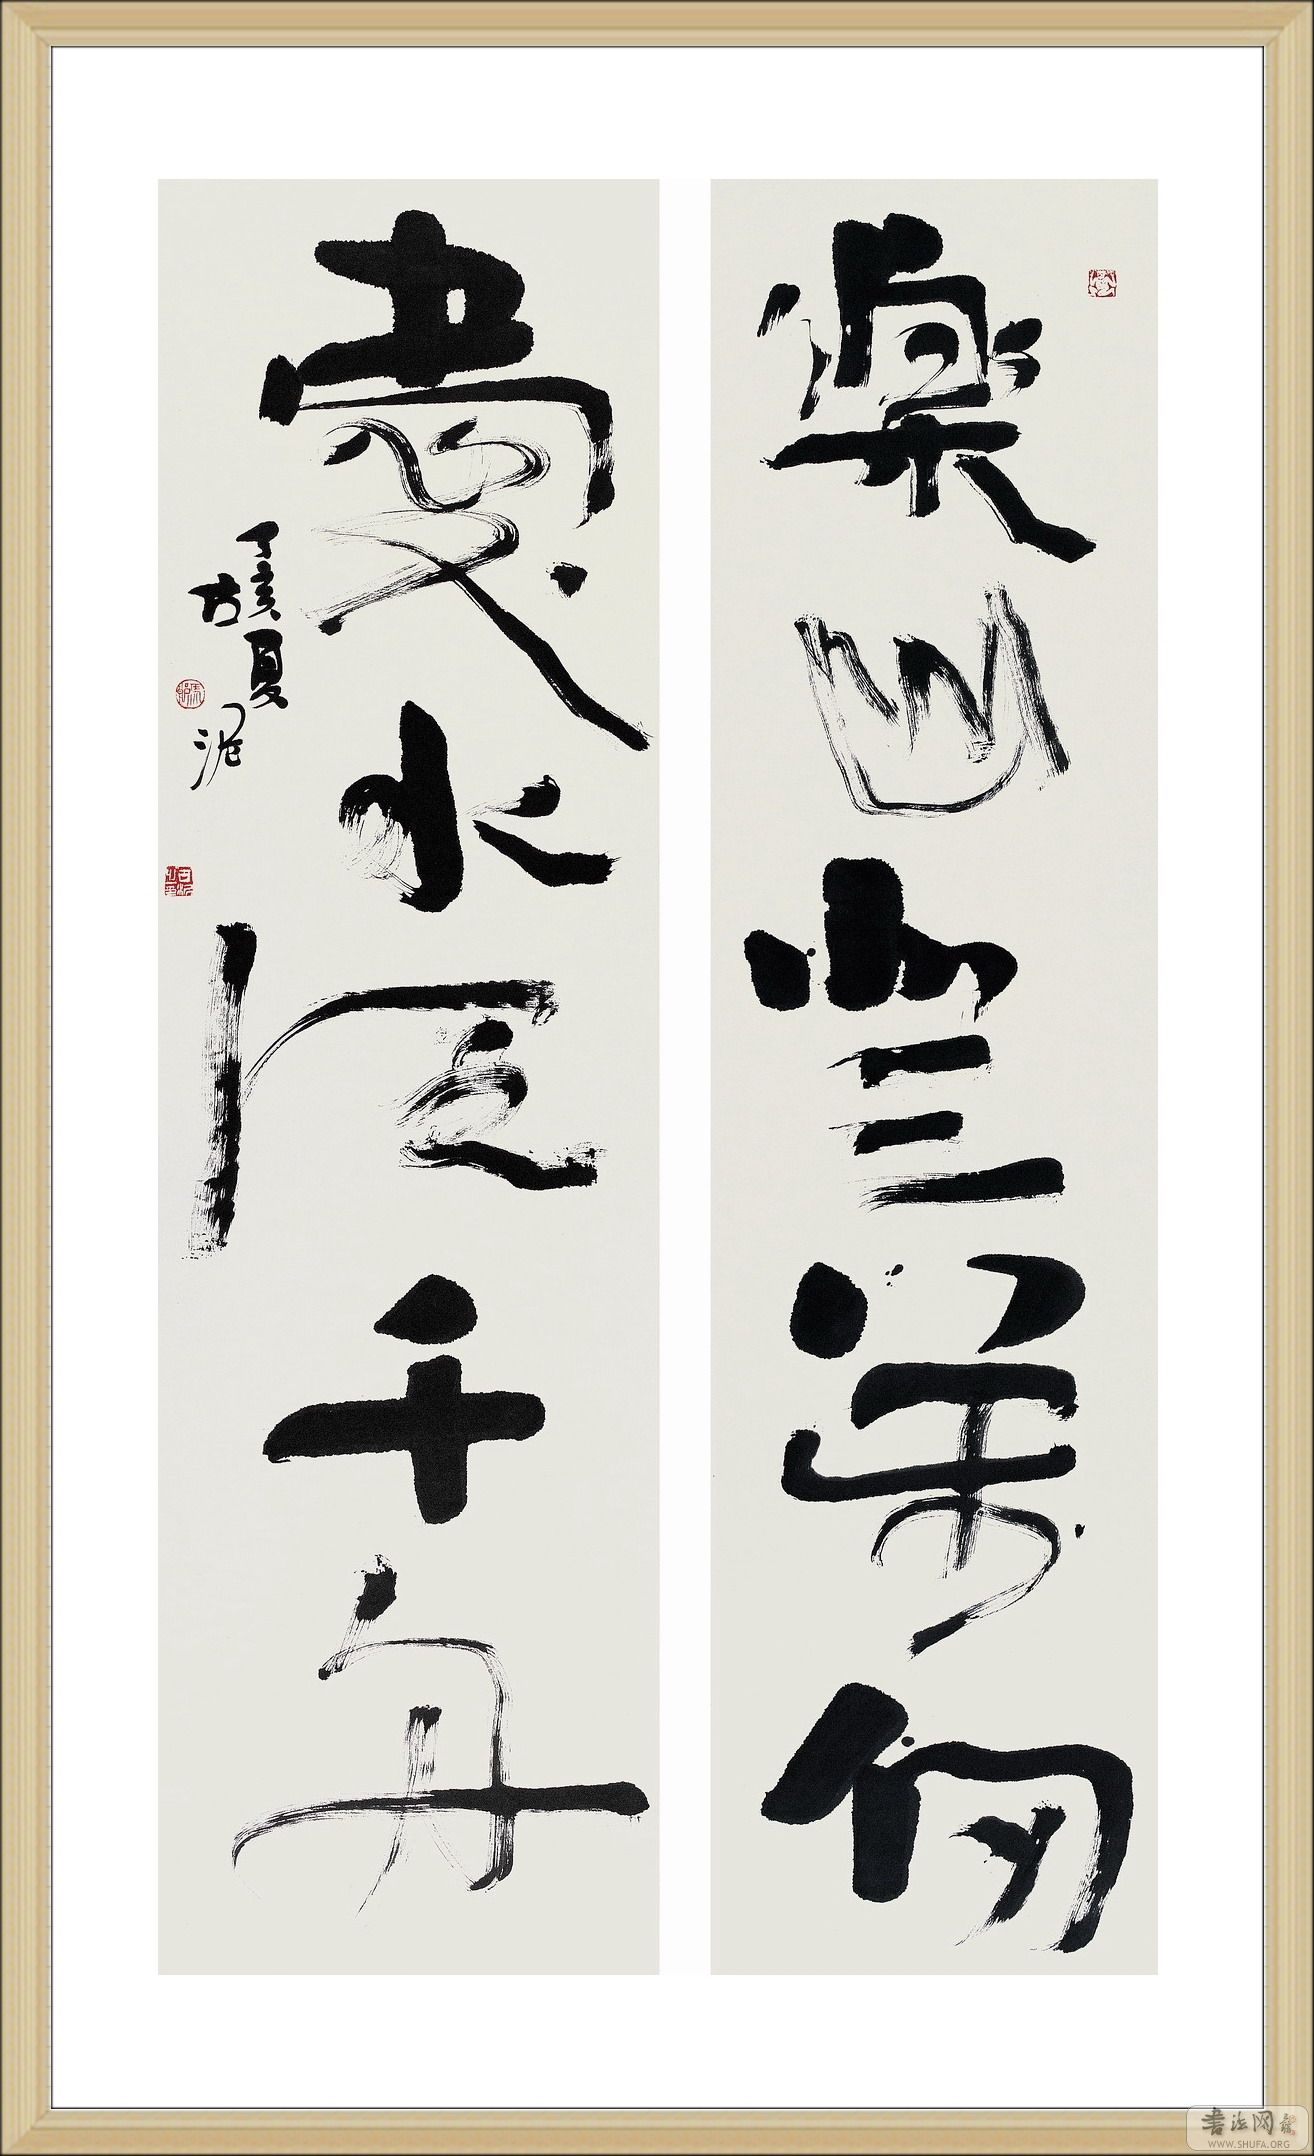 樂山登萬仞
愛水泛千舟
丁亥夏
古泥
書法网
WWW.SHUFA.ORG